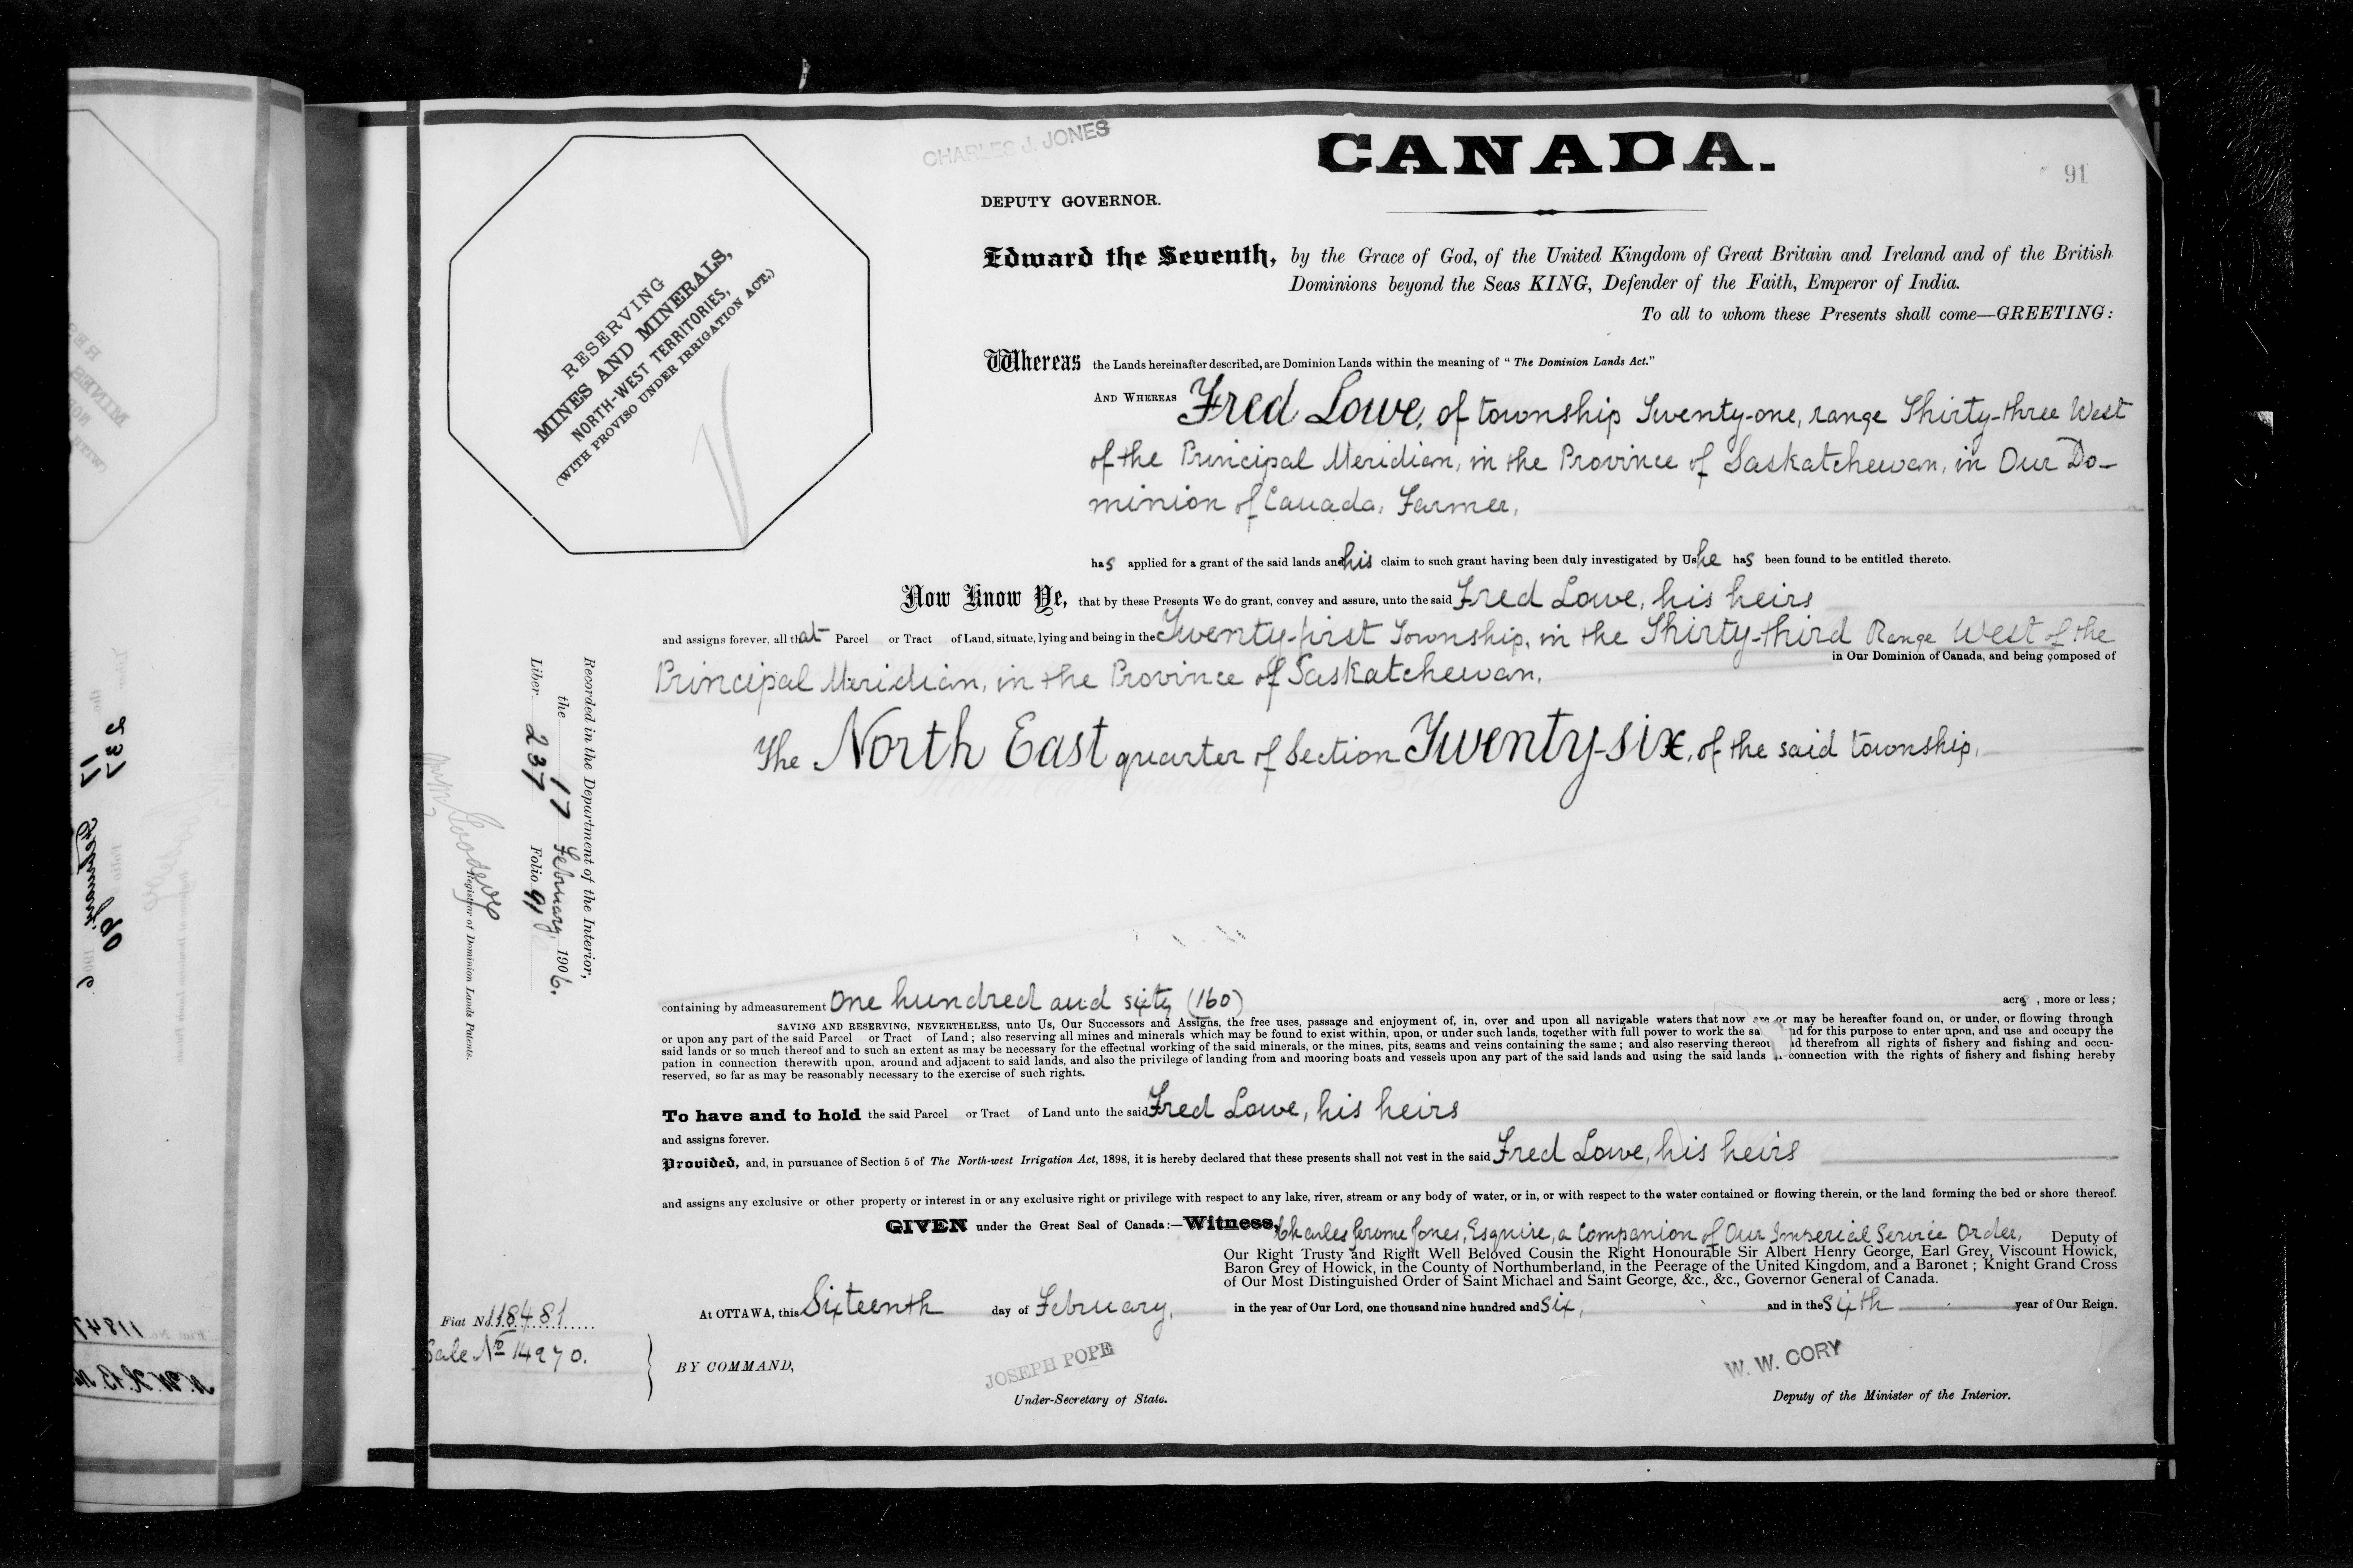 CHARLES J. JONES
CANADA.
91
DEPUTY GOVERNOR.
RESERVING
MINES AND MINERALS,
NORTH-WEST TERRITORIES,
(WITH PROVISO UNDER IRRIGATION ACT.)
Edward the Seventh, by the Grace of God, of the United Kingdom of Great Britain and Ireland and of the British
Dominions beyond the Seas KING, Defender of the Faith, Emperor of India.
To all to whom these Presents shall come—GREETING:
Whereas the Lands hereinafter described, are Dominion Lands within the meaning of "The Dominion Lands Act."
AND WHEREAS Fred Lowe, of township Twenty-one, range Thirty-three West
of the Principal Meridian, in the Province of Saskatchewan, in Our Do-
minion of Canada, Farmer,
has applied for a grant of the said lands and his claim to such grant having been duly investigated by Us he has been found to be entitled thereto.
Now Know Ye, that by these Presents We do grant, convey and assure, unto the said Fred Lowe, his heirs
and assigns forever, all that Parcel or Tract of Land, situate, lying and being in the Twenty-first Township, in the Thirty-third Range West of the
in Our Dominion of Canada, and being composed of
Principal Meridian, in the Province of Saskatchewan,
The North East quarter of Section Twenty-six, of the said township,
Recorded in the Department of the Interior,
the 17 February, 1906.
Liber 237 Folio 91
Registrar of Dominion Lands Patents.
containing by admeasurement one hundred and sixty (160) acres, more or less;
SAVING AND RESERVING, NEVERTHELESS, unto Us, Our Successors and Assigns, the free uses, passage and enjoyment of, in, over and upon all navigable waters that now are or may be hereafter found on, or under, or flowing through
or upon any part of the said Parcel or Tract of Land; also reserving all mines and minerals which may be found to exist within, upon, or under such lands, together with full power to work the sa nd for this purpose to enter upon, and use and occupy the
said lands or so much thereof and to such an extent as may be necessary for the effectual working of the said minerals, or the mines, pits, seams and veins containing the same; and also reserving thereou nd therefrom all rights of fishery and fishing and occu-
pation in connection therewith upon, around and adjacent to said lands, and also the privilege of landing from and mooring boats and vessels upon any part of the said lands and using the said lands connection with the rights of fishery and fishing hereby
reserved, so far as may be reasonably necessary to the exercise of such rights.
To have and to hold the said Parcel or Tract of Land unto the said Fred Lowe, his heirs
and assigns forever.
Provided, and, in pursuance of Section 5 of The North-west Irrigation Act, 1898, it is hereby declared that these presents shall not vest in the said Fred Lowe, his heirs
and assigns any exclusive or other property or interest in or any exclusive right or privilege with respect to any lake, river, stream or any body of water, or in, or with respect to the water contained or flowing therein, or the land forming the bed or shore thereof.
GIVEN under the Great Seal of Canada:—Witness, Charles Jerome Jones, Esquire, a Companion of Our Imperial Service Order, Deputy of
Our Right Trusty and Right Well Beloved Cousin the Right Honourable Sir Albert Henry George, Earl Grey, Viscount Howick,
Baron Grey of Howick, in the County of Northumberland, in the Peerage of the United Kingdom, and a Baronet; Knight Grand Cross
of Our Most Distinguished Order of Saint Michael and Saint George, &c., &c., Governor General of Canada.
At OTTAWA, this Sixteenth day of February, in the year of Our Lord, one thousand nine hundred and six, and in the sixth year of Our Reign.
Fiat No. 118481
Sale No 14270.
BY COMMAND,
JOSEPH POPE
Under-Secretary of State.
W. W. CORY
Deputy of the Minister of the Interior.